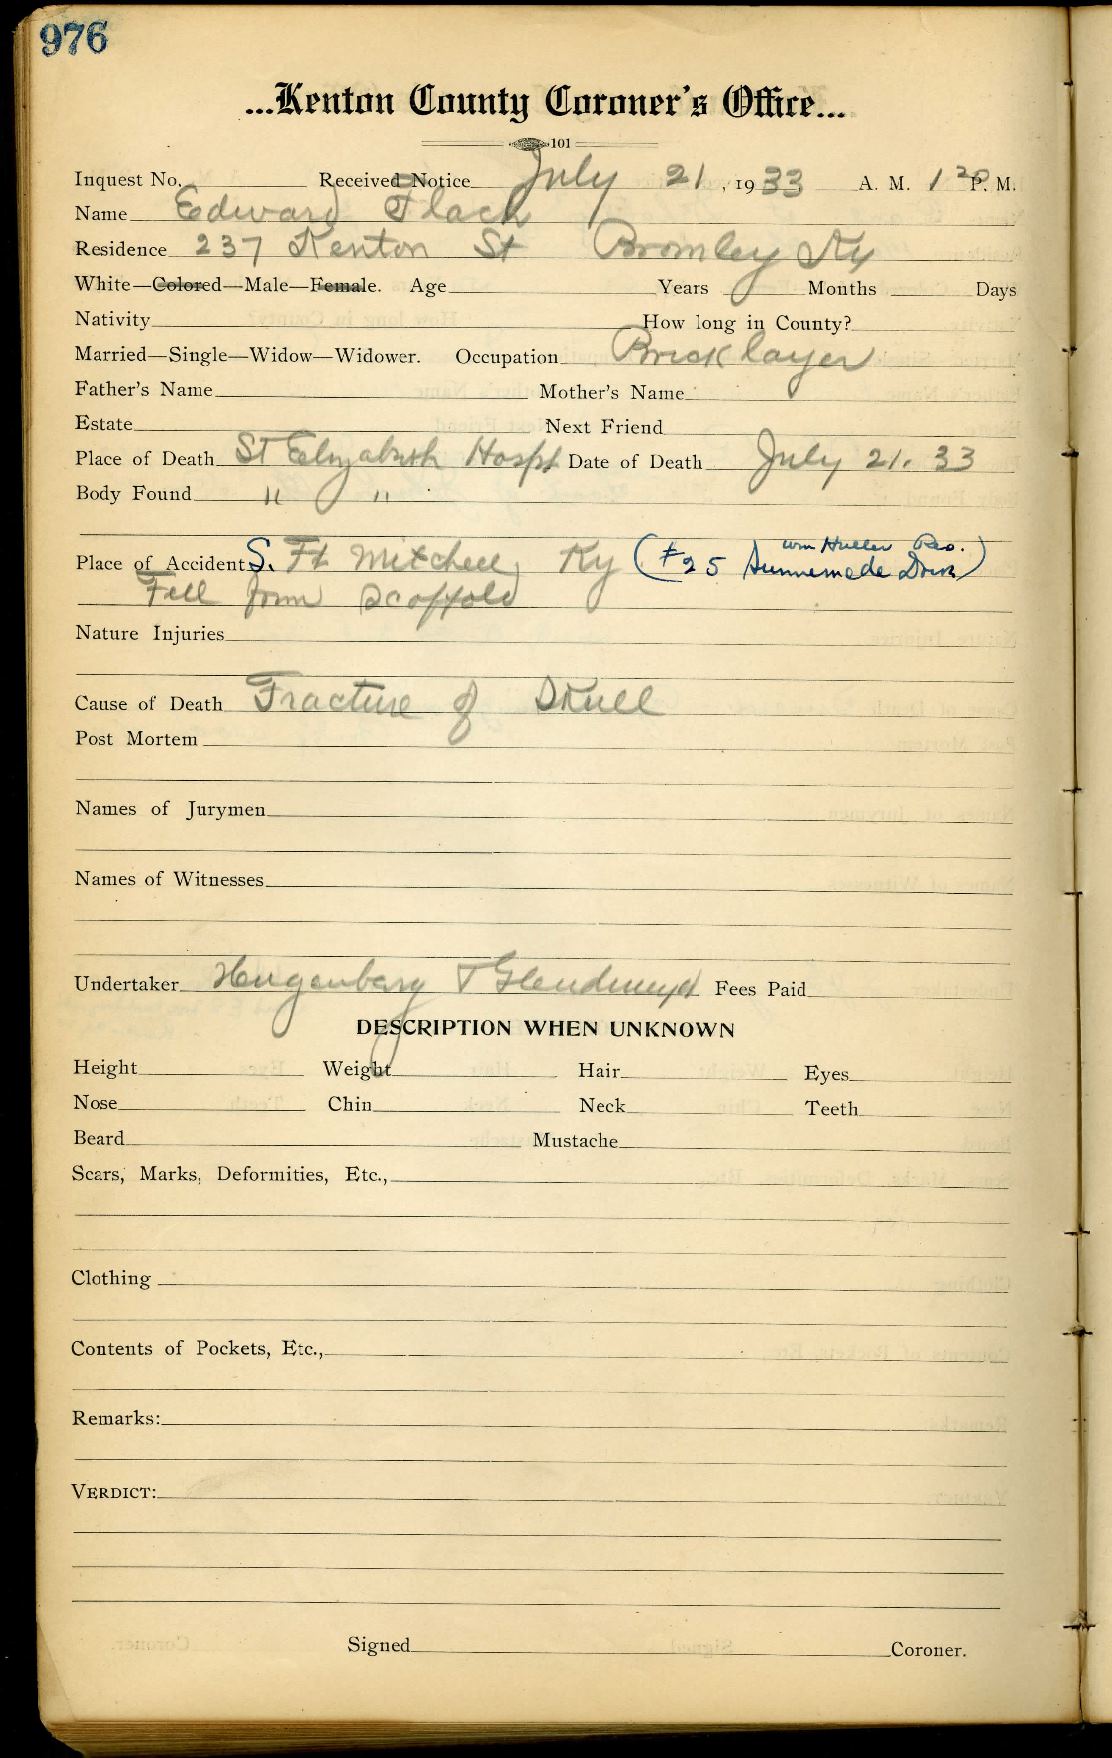 976
...Kenton County Coroner's Office...
101
Inquest No. Received Notice July 21, 1933 A. M. 1 20 P. M.
Name Edward Flach
Residence 237 Kenton St Bromley Ky
White—Colored—Male—Female. Age Years Months Days
Nativity How long in County?
Married—Single—Widow—Widower. Occupation Brick layer
Father's Name Mother's Name
Estate Next Friend
Place of Death St Elizabeth Hospt Date of Death July 21. 33
Body Found " "
wm Res.
Place of Accident S. Ft Mitchell, Ky (#25 Drive)
Fell from Scaffold
Nature Injuries
Cause of Death Fracture of Skull
Post Mortem
Names of Jurymen
Names of Witnesses
Undertaker Fees Paid
DESCRIPTION WHEN UNKNOWN
Height Weight Hair Eyes
Nose Chin Neck Teeth
Beard Mustache
Scars, Marks, Deformities, Etc.,
Clothing
Contents of Pockets, Etc.,
Remarks:
VERDICT:
Signed Coroner.